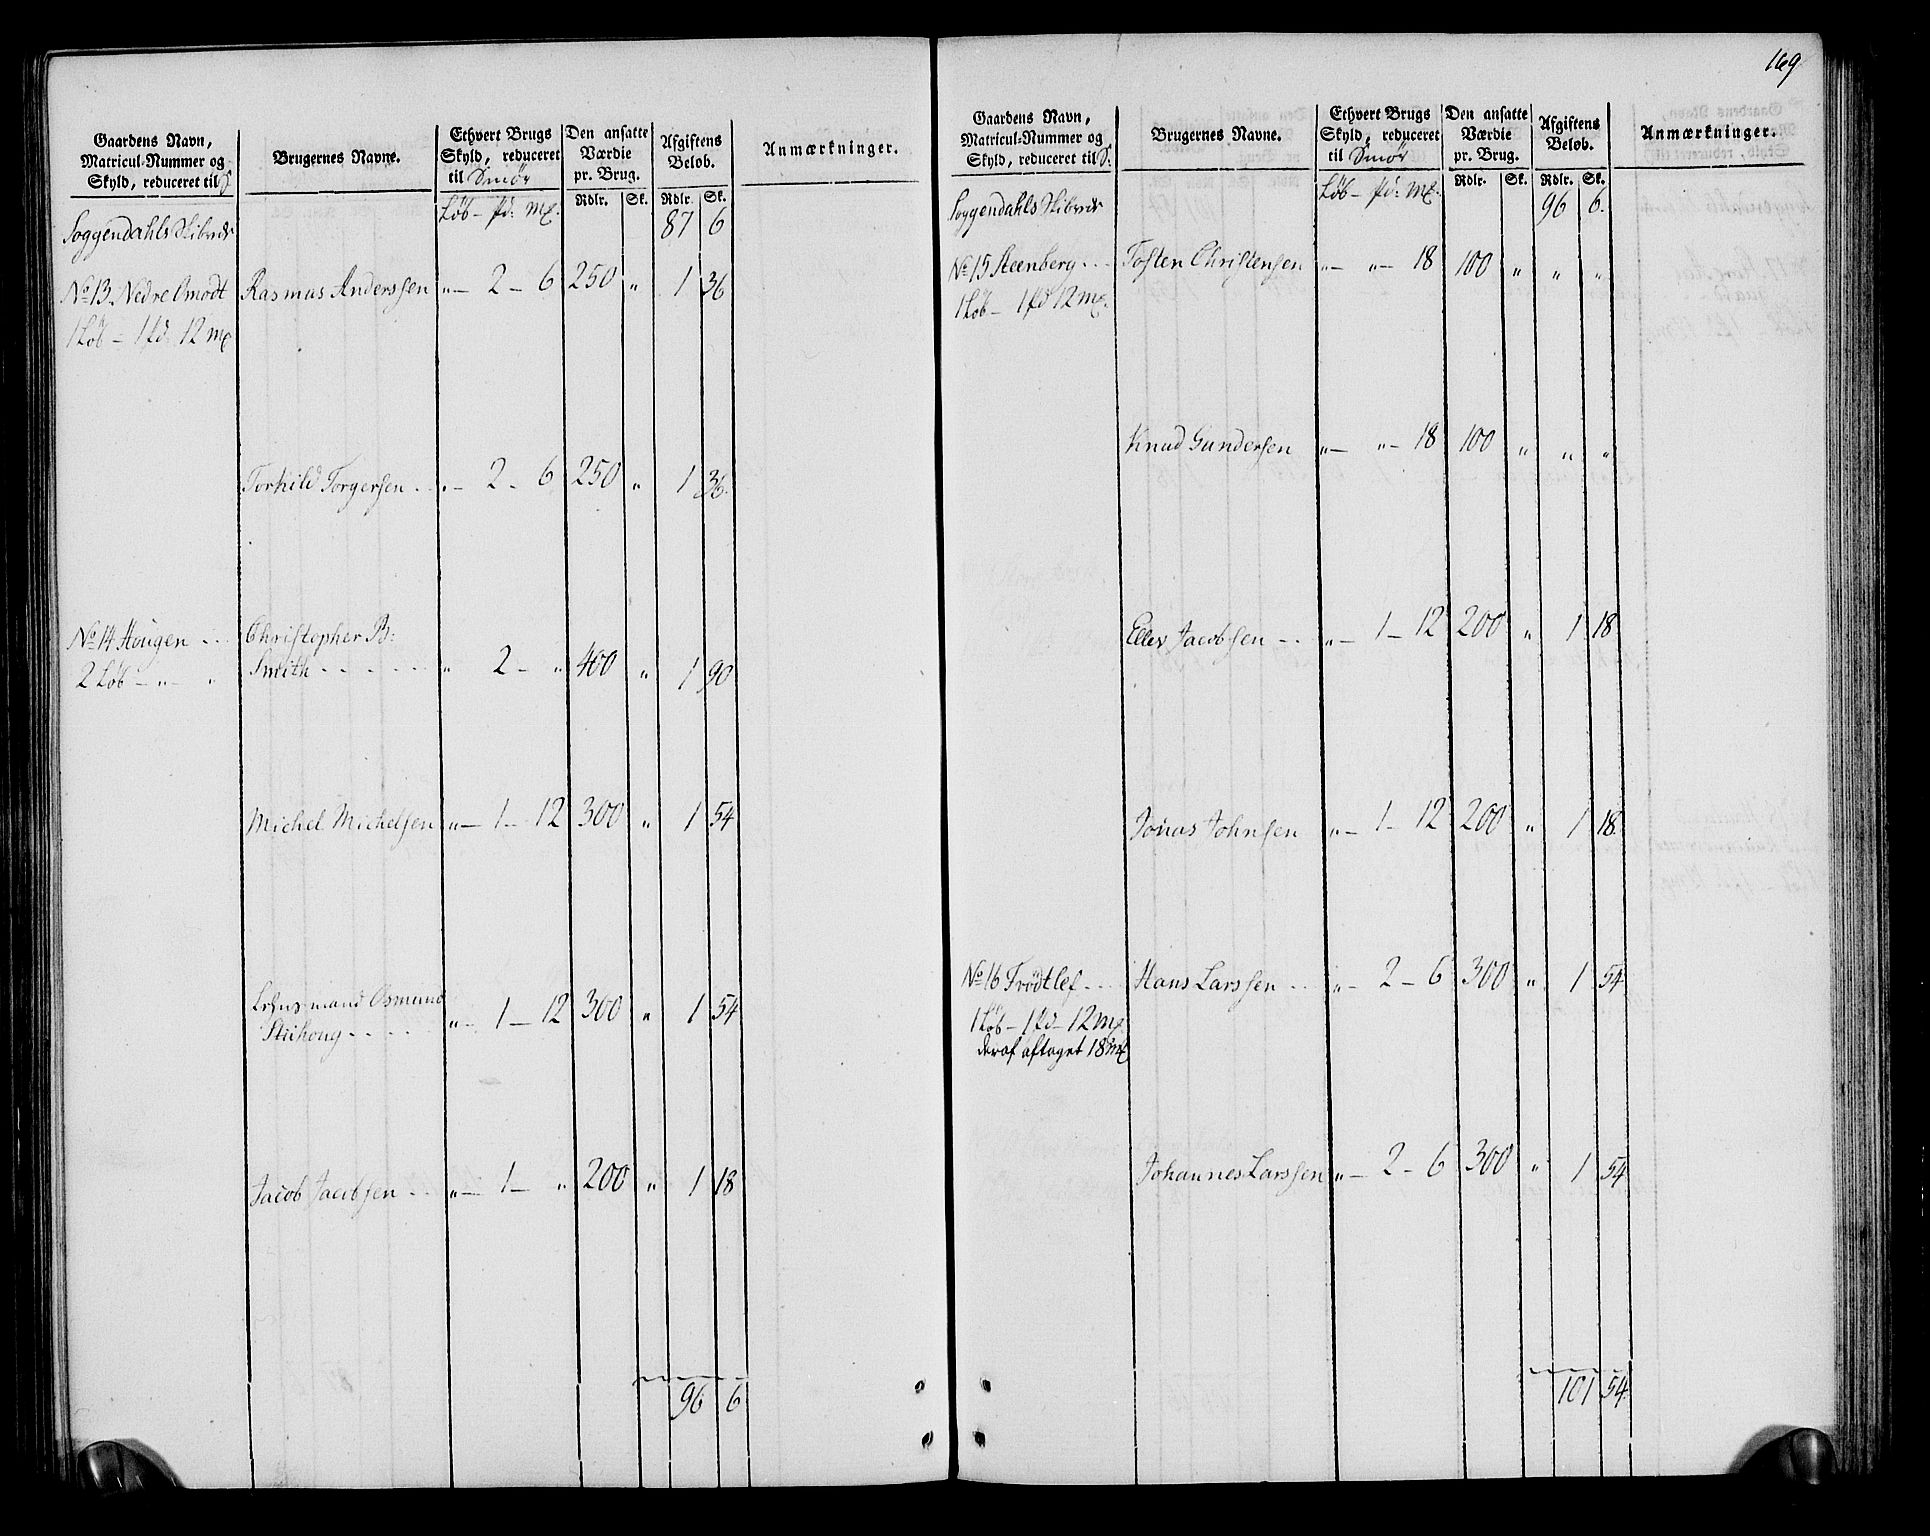 Gaardens Navn,
Matricul-Nummer og
Skyld, reduceret til S.
Brugernes Navne.
Ethvert Brugs
Skyld, reduceret
til Smör
Den ansatte
Værdie
pr. Brug.
Afgiftens
Beløb.
Anmærkninger.
Rdlr. Sk. Rdlr. Sk.
Soggendahls Skibrede Løb – pd: mk. 87 6
No 13. Nedre Omodt Rasmus Anderssen „ – 2 – 6 250 „ 1 36
1 Løb – 1 pd: 12 mk
Torkild Torgersen . . „ – 2 – 6 250 „ 1 36.
No 14 Hougen . . . Christopher B:
2 Løb – „ – „ Smith - - - - - „ 2 – „ 400 „ 1 90
Michel Michelsen „ – 1 – 12 300 „ 1 54
Lehnsmand Osmund
- - - - „ – 1 – 12 300 „ 1 54
Jacob Jacobsen . . „ – 1 – „ 200 „ 1 18
96 6
169
Gaardens Navn,
Matricul-Nummer og
Skyld, reduceret til S.
Brugernes Navne.
Ethvert Brugs
Skyld, reduceret
til Smör
Den ansatte
Værdie
pr. Brug.
Afgiftens
Beløb.
Anmærkninger.
Rdlr. Sk. Rdlr. Sk.
Soggendahls Skibrede Løb – pd: mk. 96 6.
No 15 Steenberg . . . Tosten Christensen „ – „ – 18 100 „ „ „
1 Løb – 1 pd 12 mk.
Knud Gundersen „ – „ – 18 100 „ „ „
Ellev Jacobsen . . „ – 1 – 12 200 „ 1 18
Jonas Johnsen „ – 1 – 12 200 „ 1 18.
No 16 Trödtlef . . . Hans Larssen . . „ – 2 – 6 300 „ 1 54
1 Løb – 1 pd – 12 mk
deraf aftaget 18 mk
Johannes Larssen „ – 2 – 6 300 „ 1 54
101 54.